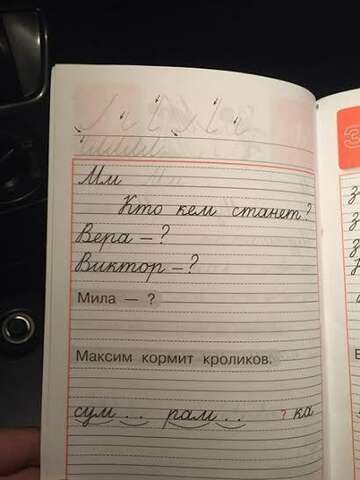 Мм
Кто кем станет?
Вера – ?
Виктор – ?
Мила — ?
Максим кормит кроликов.
сум . . рам . . ? ка